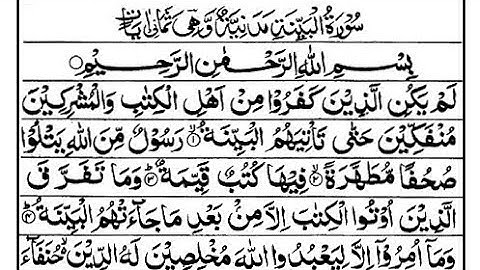 سُوْرَةُ الْبَيِّنَةِ مَدَنِيَّةٌ وَّهِيَ ثَمَانُ اٰيَاتٍ
بِسْمِ اللهِ الرَّحْمٰنِ الرَّحِيْمِ ○
لَمْ يَكُنِ الَّذِيْنَ كَفَرُوْا مِنْ اَهْلِ الْكِتٰبِ وَالْمُشْرِكِيْنَ
مُنْفَكِّيْنَ حَتّٰى تَاْتِيَهُمُ الْبَيِّنَةُ ۙ﴿۱﴾ رَسُوْلٌ مِّنَ اللهِ يَتْلُوْا
صُحُفًا مُّطَهَّرَةً ۙ﴿۲﴾ فِيْهَا كُتُبٌ قَيِّمَةٌ ؕ﴿۳﴾ وَمَا تَفَرَّقَ
الَّذِيْنَ اُوْتُوا الْكِتٰبَ اِلَّا مِنْۢ بَعْدِ مَا جَآءَتْهُمُ الْبَيِّنَةُ ؕ﴿۴﴾
وَمَاۤ اُمِرُوْۤا اِلَّا لِيَعْبُدُوا اللهَ مُخْلِصِيْنَ لَهُ الدِّيْنَ ۙ حُنَفَآءَ